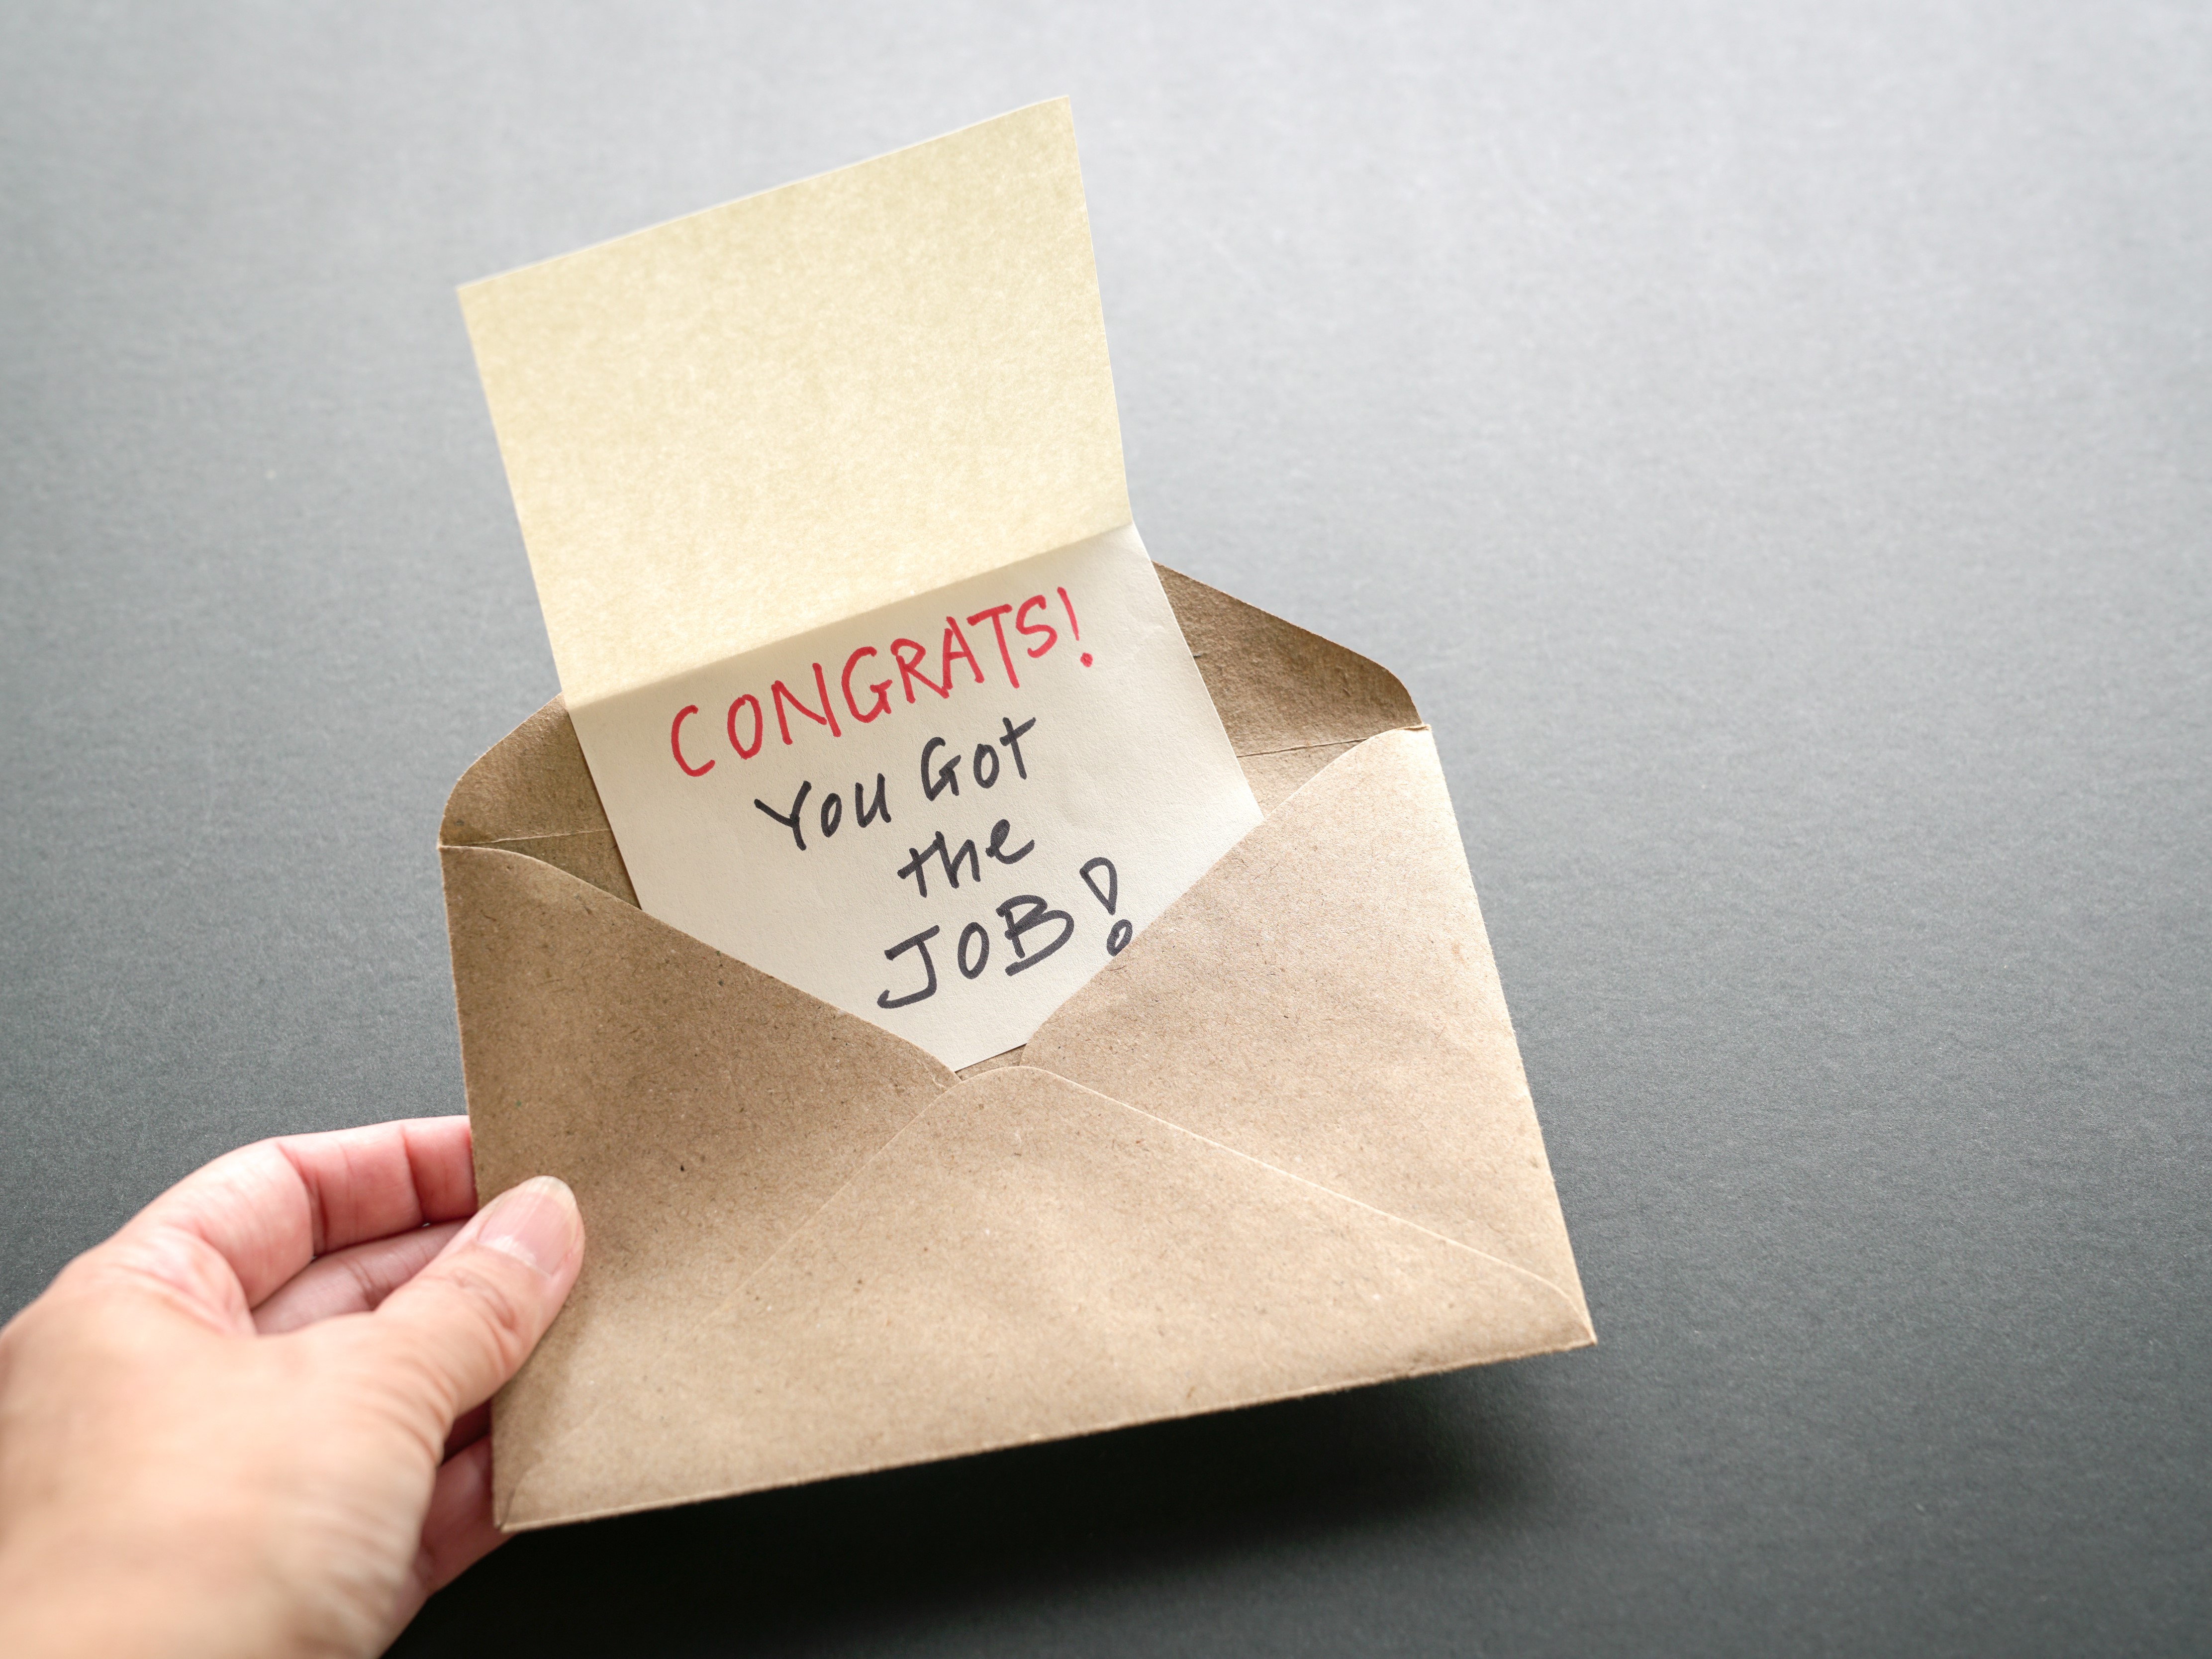 CONGRATS!
You Got
the
JOB!